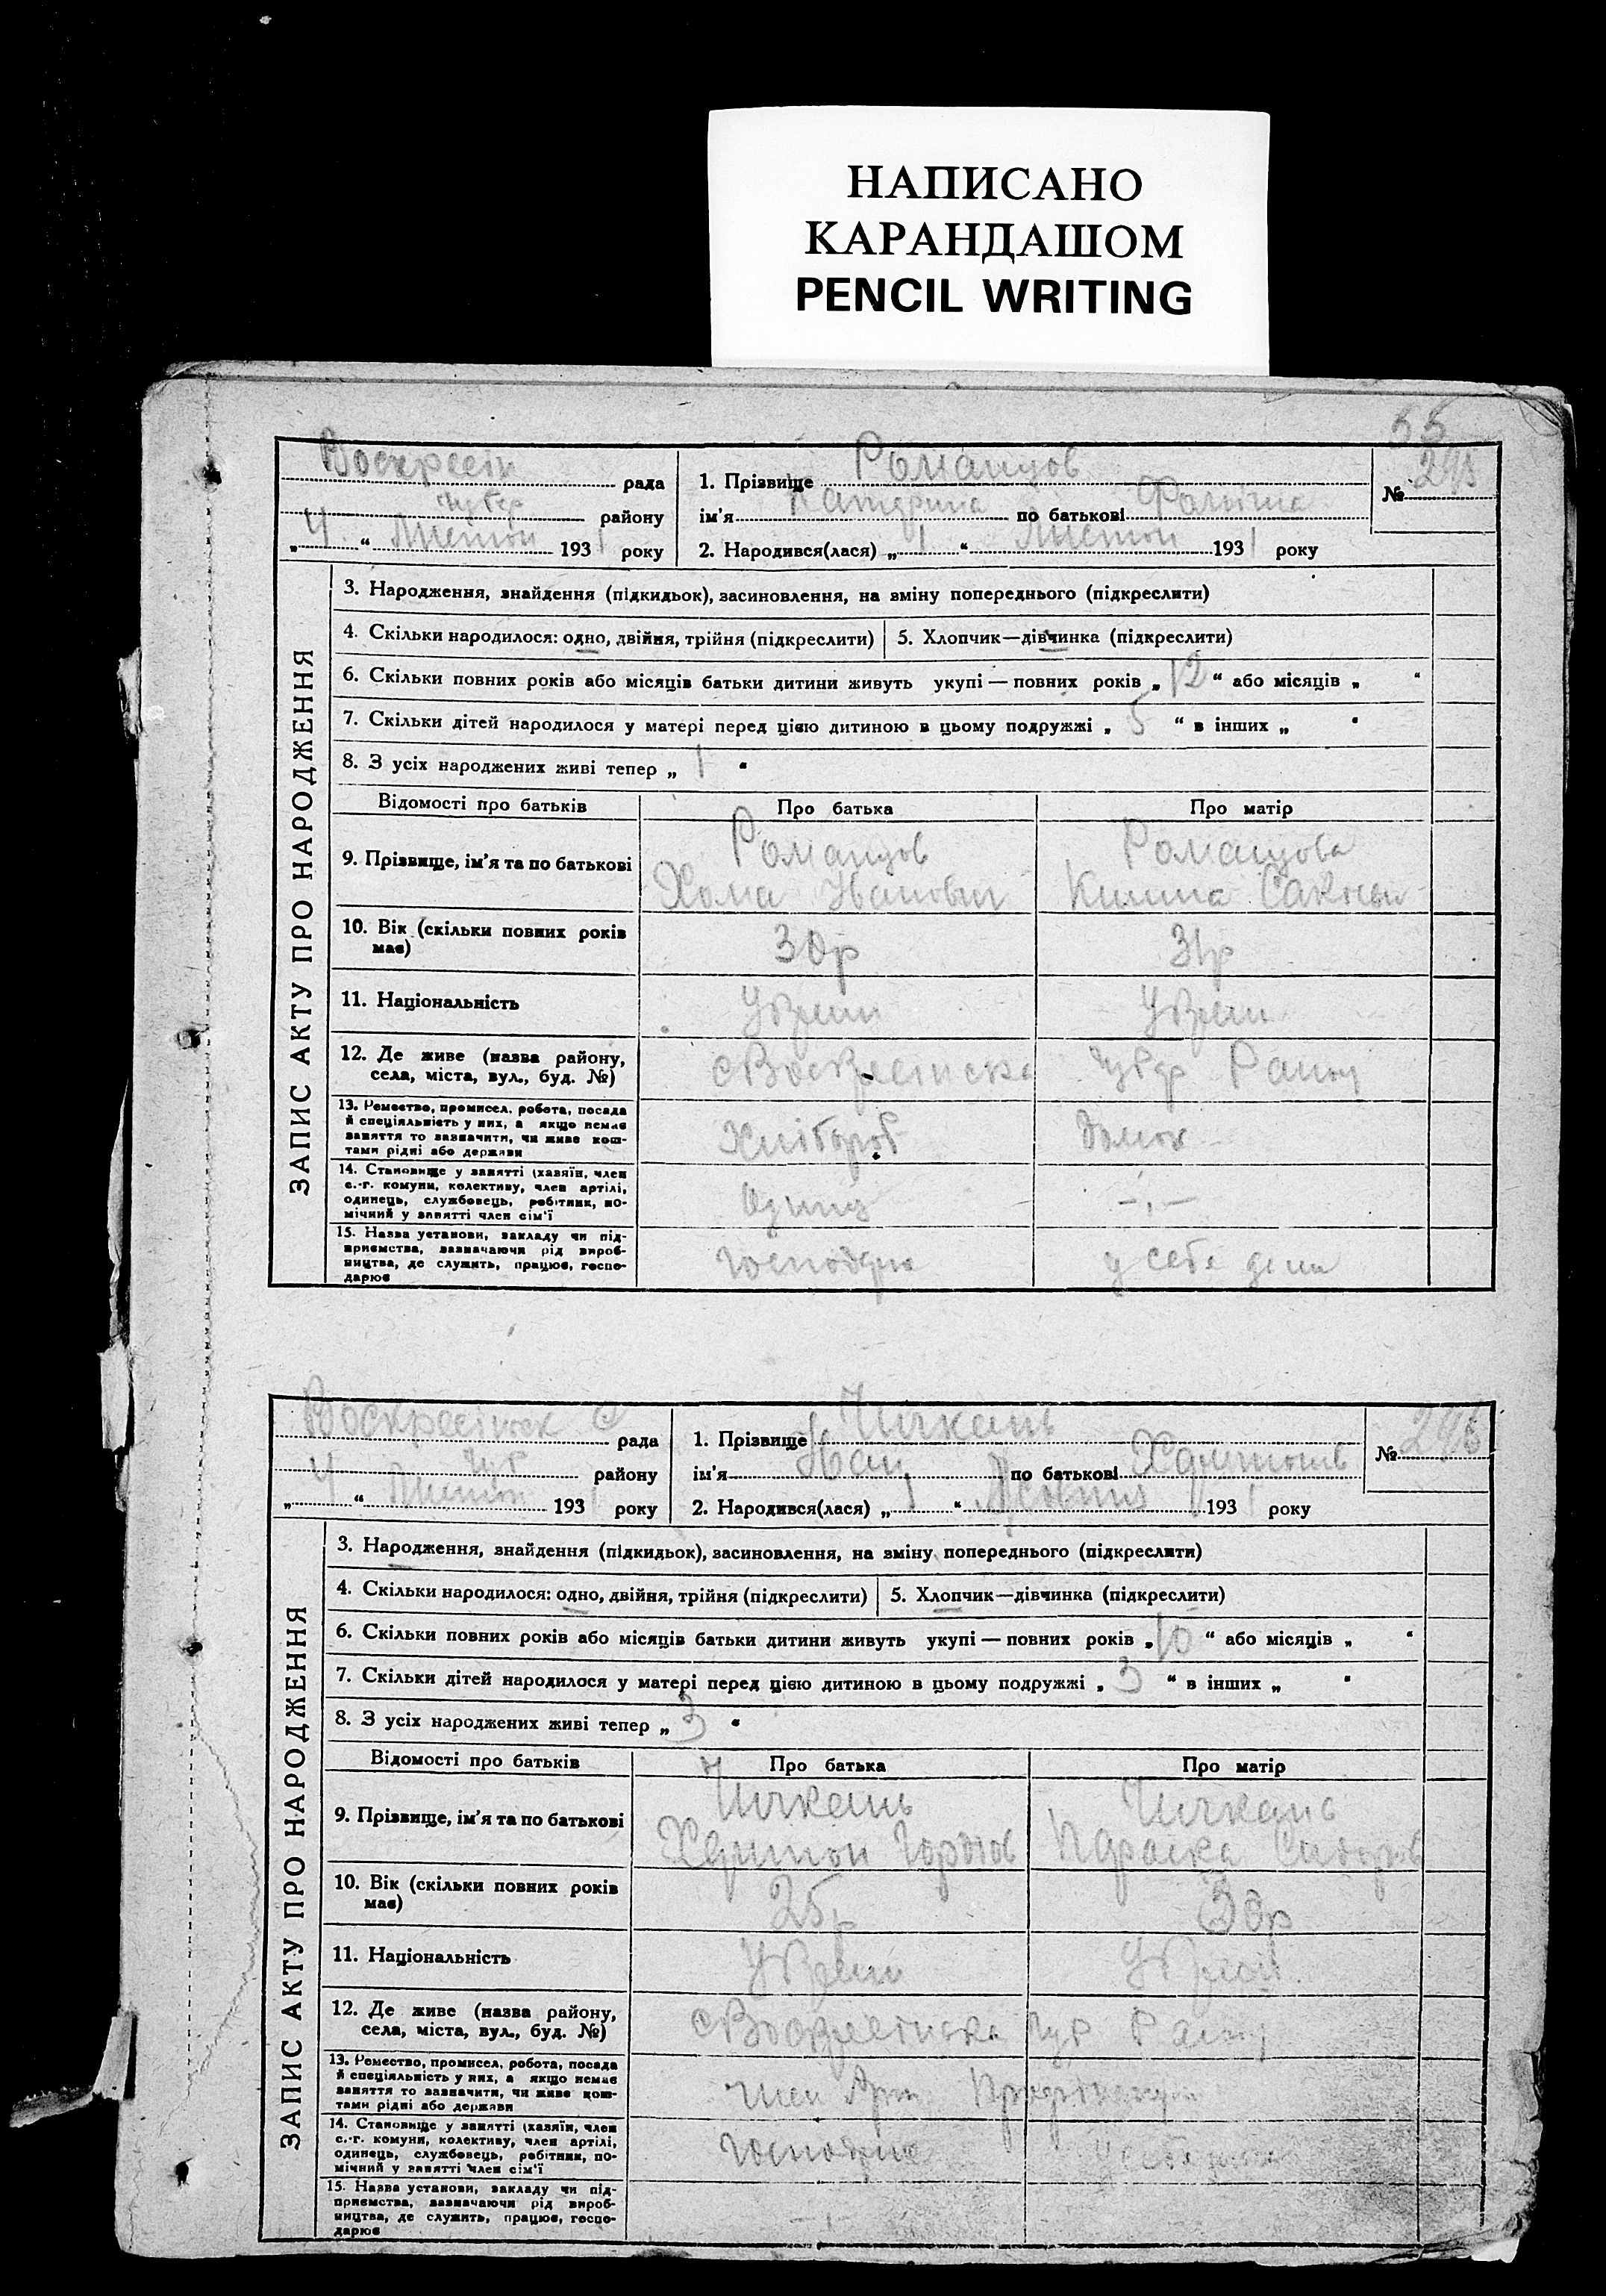 НАПИСАНО
КАРАНДАШОМ
PENCIL WRITING
55
ЗАПИС АКТУ ПРО НАРОДЖЕННЯ
Воскресін рада
району
„ 4 “ Листоп 1931 року
1. Прізвище Романцов
ім'я Катерина по батькові Фомічна
2. Народився(лася) „ 1 “ Листоп 1931 року
№ 295
3. Народження, знайдення (підкидьок), засиновлення, на зміну попереднього (підкреслити)
4. Скільки народилося: одно, двійня, трійня (підкреслити) 5. Хлопчик—дівчинка (підкреслити)
6. Скільки повних років або місяців батьки дитини живуть укупі — повних років „ 12 “ або місяців „ “
7. Скільки дітей народилося у матері перед цією дитиною в цьому подружжі „ 5 “ в інших „ “
8. З усіх народжених живі тепер „ 1 “
Відомості про батьків Про батька Про матір
9. Прізвище, ім'я та по батькові Романцов Романцова
Хома Іванович Килина
10. Вік (скільки повних років має) 30р 31р
11. Національність Украін Украін
12. Де живе (назва району,
села, міста, вул., буд. №) с Воскресінска Раину
13. Ремество, промисел, робота, посада
й спеціяльність у них, а якщо немає
заняття то зазначити, чи живе кош-
тами рідні або держави Хлібороб Домох
14. Становище у занятті (хазяїн, член
с.-г. комуни, колективу, член артілі,
одинець, службовець, робітник, по-
мічний у занятті член сім'ї Одинц —„—
15. Назва установи, закладу чи під-
приємства, зазначаючи рід вироб-
ництва, де служить, працює, госпо-
дарює господарю у себе дома
ЗАПИС АКТУ ПРО НАРОДЖЕННЯ
Воскресінск С рада
району
„ 4 “ Листоп 1931 року
1. Прізвище Чичкань
ім'я Іван по батькові Харитонов
2. Народився(лася) „ 1 “ 1931 року
№ 296
3. Народження, знайдення (підкидьок), засиновлення, на зміну попереднього (підкреслити)
4. Скільки народилося: одно, двійня, трійня (підкреслити) 5. Хлопчик—дівчинка (підкреслити)
6. Скільки повних років або місяців батьки дитини живуть укупі — повних років „ 10 “ або місяців „ “
7. Скільки дітей народилося у матері перед цією дитиною в цьому подружжі „ 3 “ в інших „ “
8. З усіх народжених живі тепер „ 3 “
Відомості про батьків Про батька Про матір
9. Прізвище, ім'я та по батькові Чичкань Чичкань
Харитон Гордіов Параска Сидоров
10. Вік (скільки повних років має) 30р
11. Національність Украін Украін
12. Де живе (назва району,
села, міста, вул., буд. №) с Воскресінска Раину
13. Ремество, промисел, робота, посада
й спеціяльність у них, а якщо немає
заняття то зазначити, чи живе кош-
тами рідні або держави член Арт
14. Становище у занятті (хазяїн, член
с.-г. комуни, колективу, член артілі,
одинець, службовець, робітник, по-
мічний у занятті член сім'ї господарю
15. Назва установи, закладу чи під-
приємства, зазначаючи рід вироб-
ництва, де служить, працює, госпо-
дарює —„—